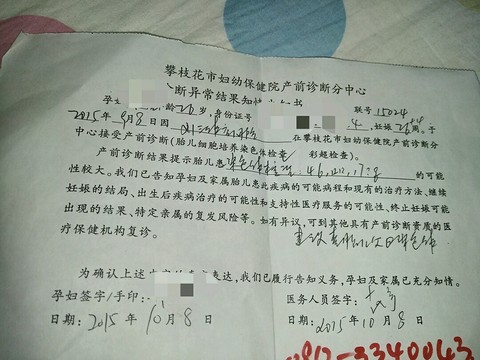 攀枝花市妇幼保健院产前诊断分中心
断异常结果知情
孕妇 龄26岁,身份证号 联号15024
2015年9月8日因 4,妊娠26+4周。于
中心接受产前诊断(胎儿细胞培养染色体检查/ 彩超检查)。
产前诊断结果提示胎儿患 46, 的可能
性较大。我们已告知孕妇及家属胎儿患此疾病的可能病程和现有的治疗方法、继续
妊娠的结局、出生后疾病治疗的可能性和支持性医疗服务的可能性、终止妊娠可能
出现的结果、特定亲属的复发风险等。如有异议,可到其他具有产前诊断资质的医
疗保健机构复诊。 建议
为确认上述 表达,我们已履行告知义务,孕妇及家属已充分知情。
孕妇签字/手印: 医务人员签字:
日期:2015年10月8日 日期:2015年10月8日
3340063